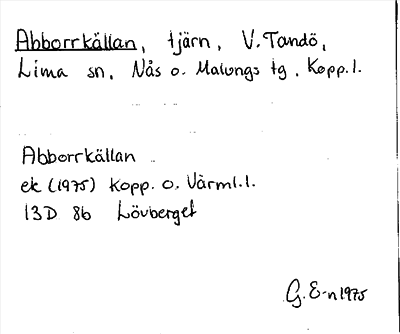 Abborrkällan, tjärn, V. Tandö,
Lima sn, Nås o. Malungs tg, Kopp. l.
Abborrkällan
ek (1975) Kopp. o. Värml. l.
13D 8b Lövberget
G. E-n 1975